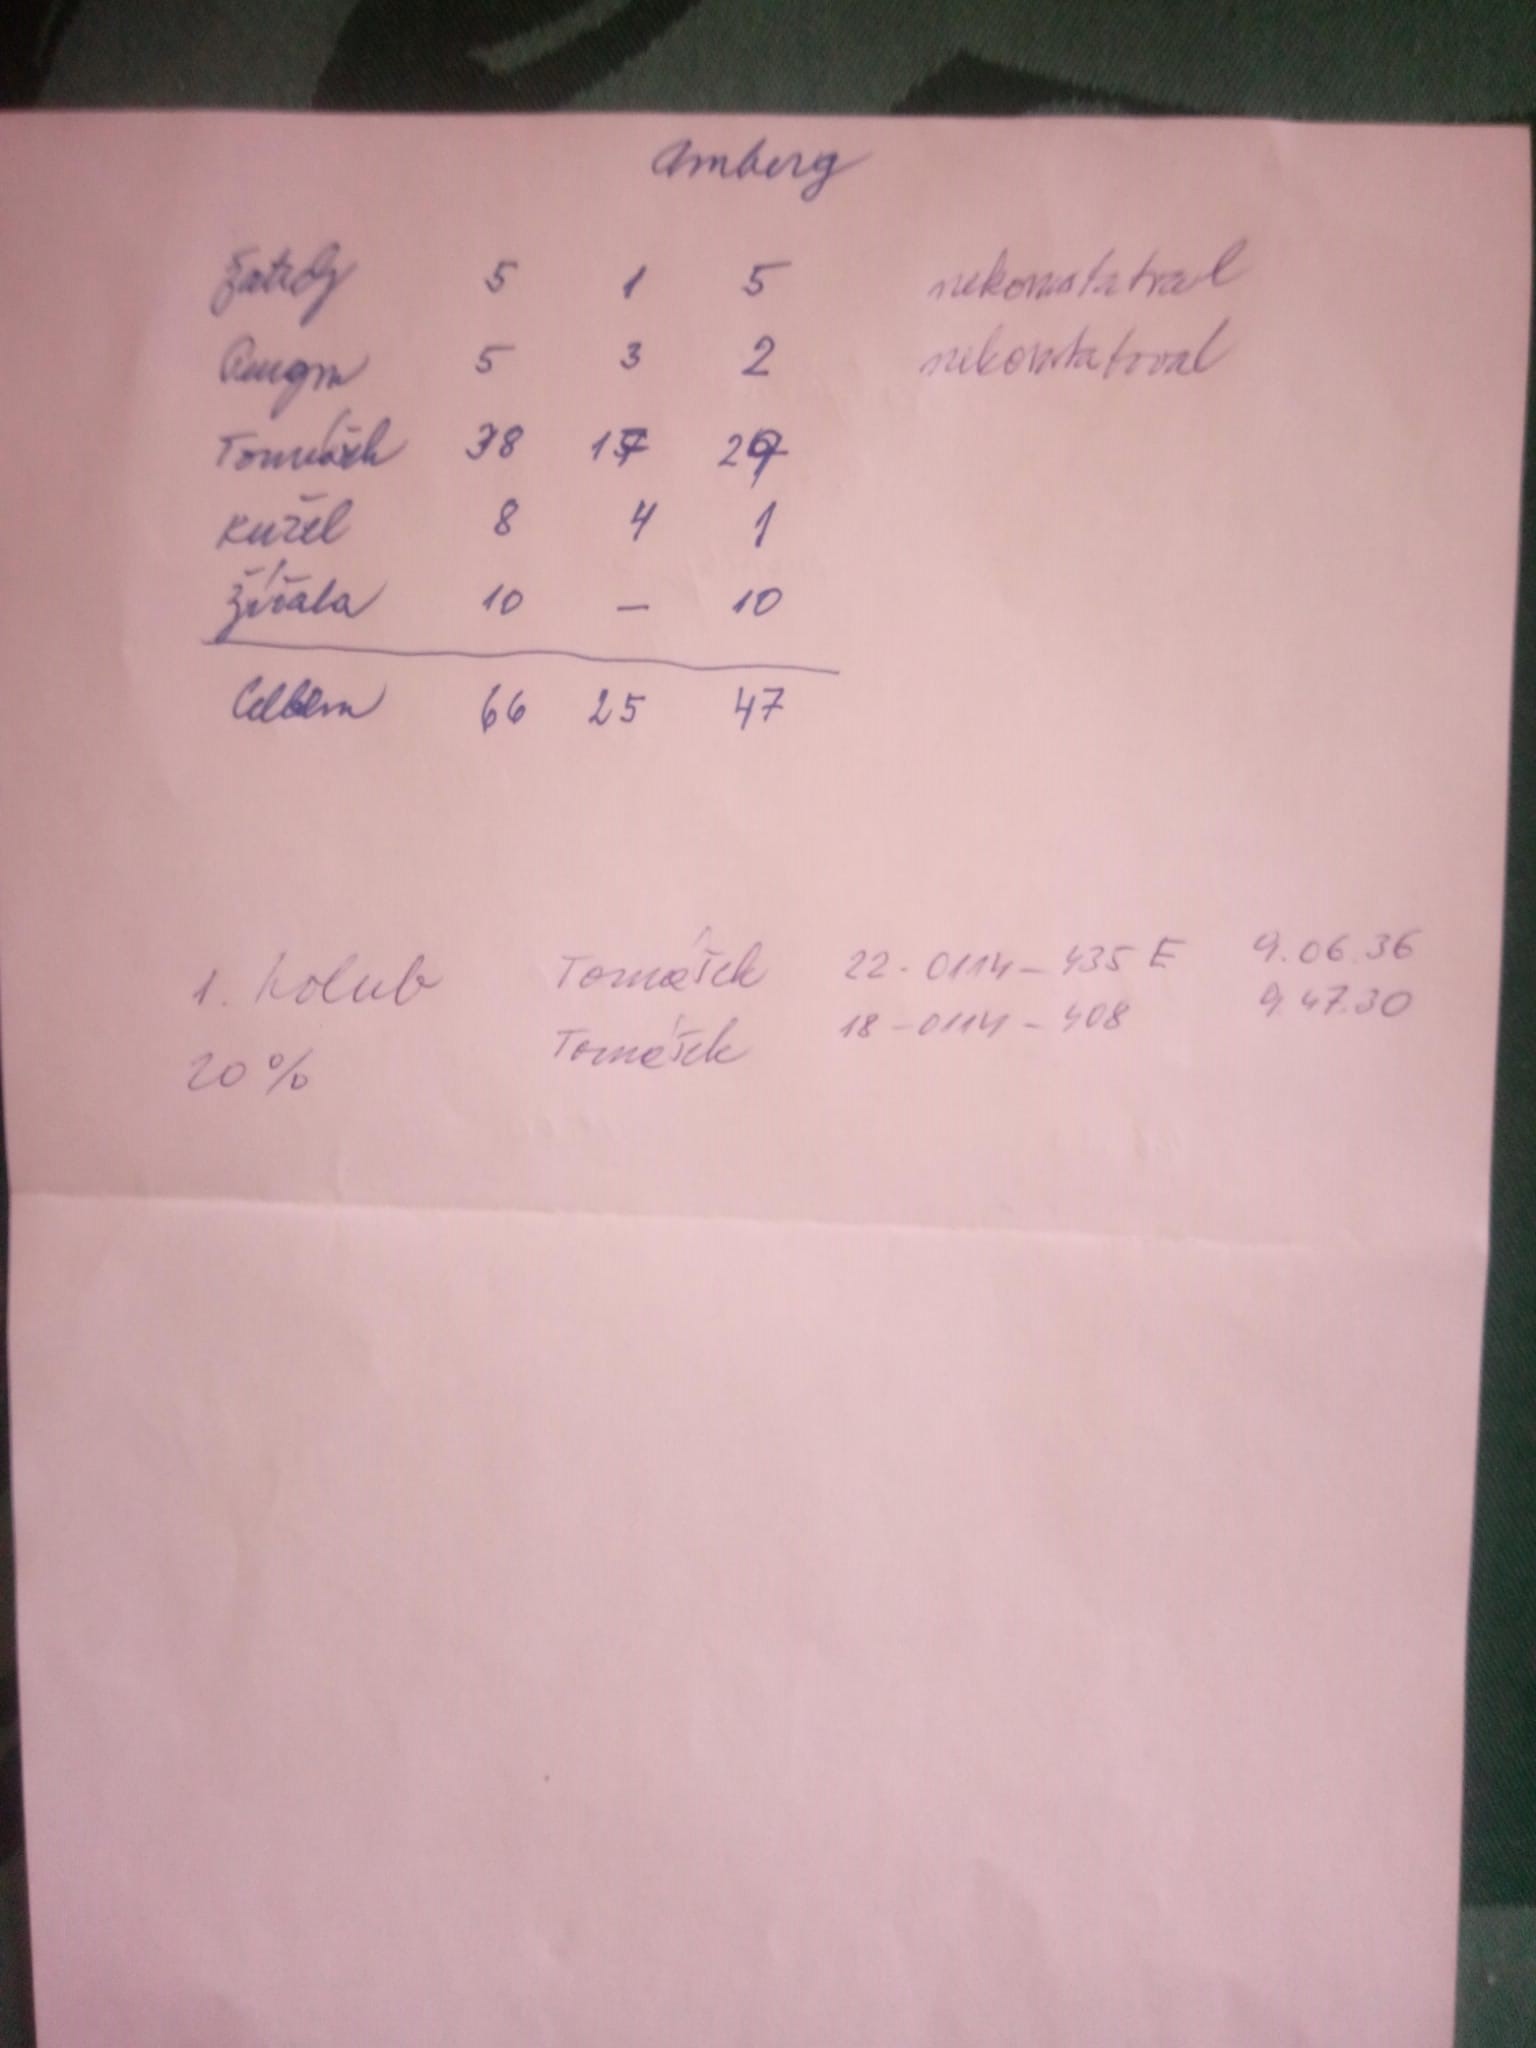 Amberg
5 1 5 nekonstatoval
5 3 2 nekonstatoval
Tomášek 38 17
Kužel 8 4 1
Žížala 10 – 10
Celkem 66 25 47
1. holub Tomášek 22-0114-435 E 9.06.36
20% Tomášek 18-0114-408 9.47.30